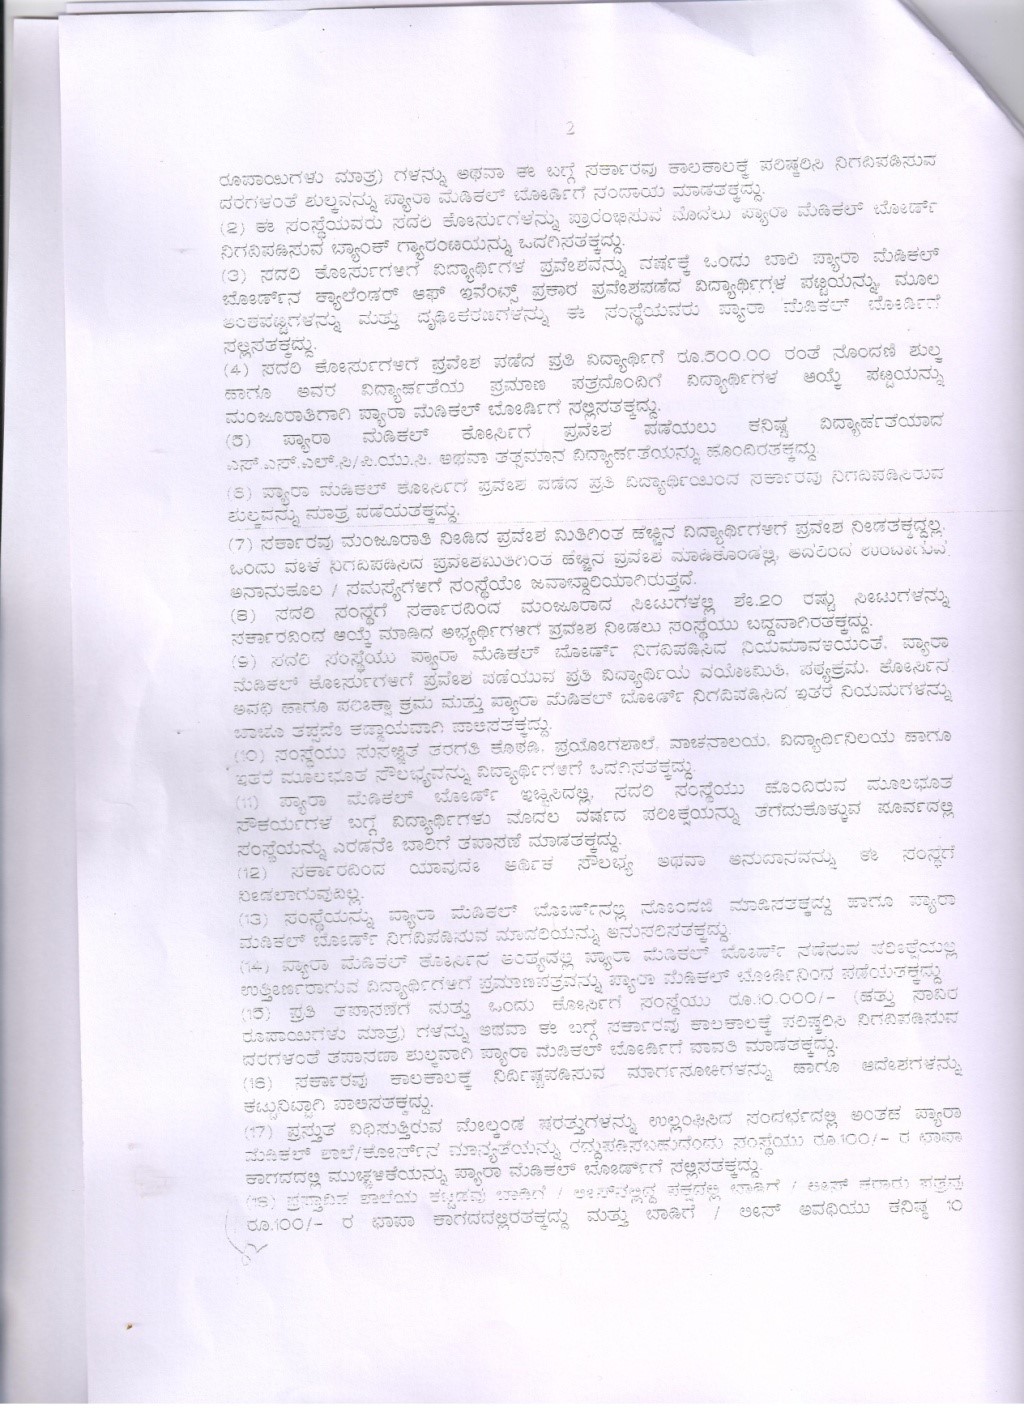 2
ರೂಪಾಯಿಗಳು ಮಾತ್ರ) ಗಳನ್ನು ಅಥವಾ ಈ ಬಗ್ಗೆ ಸರ್ಕಾರವು ಕಾಲಕಾಲಕ್ಕೆ ಪರಿಷ್ಕರಿಸಿ ನಿಗದಿಪಡಿಸುವ
ದರಗಳಂತೆ ಶುಲ್ಕವನ್ನು ಪ್ಯಾರಾ ಮೆಡಿಕಲ್ ಬೋರ್ಡಿಗೆ ಸಂದಾಯ ಮಾಡತಕ್ಕದ್ದು.
(2) ಈ ಸಂಸ್ಥೆಯವರು ಸದರಿ ಕೋರ್ಸುಗಳನ್ನು ಪ್ರಾರಂಭಿಸುವ ಮೊದಲು ಪ್ಯಾರಾ ಮೆಡಿಕಲ್ ಬೋರ್ಡ್
ನಿಗದಿಪಡಿಸುವ ಬ್ಯಾಂಕ್ ಗ್ಯಾರಂಟಿಯನ್ನು ಒದಗಿಸತಕ್ಕದ್ದು.
(3) ಸದರಿ ಕೋರ್ಸುಗಳಿಗೆ ವಿದ್ಯಾರ್ಥಿಗಳ ಪ್ರವೇಶವನ್ನು ವರ್ಷಕ್ಕೆ ಒಂದು ಬಾರಿ ಪ್ಯಾರಾ ಮೆಡಿಕಲ್
ಬೋರ್ಡ್‌ನ ಕ್ಯಾಲೆಂಡರ್ ಆಫ್ ಇವೆಂಟ್ಸ್ ಪ್ರಕಾರ ಪ್ರವೇಶಪಡೆದ ವಿದ್ಯಾರ್ಥಿಗಳ ಪಟ್ಟಿಯನ್ನು, ಮೂಲ
ಅಂಕಪಟ್ಟಿಗಳನ್ನು ಮತ್ತು ದೃಢೀಕರಣಗಳನ್ನು ಈ ಸಂಸ್ಥೆಯವರು ಪ್ಯಾರಾ ಮೆಡಿಕಲ್ ಬೋರ್ಡಿಗೆ
ಸಲ್ಲಿಸತಕ್ಕದ್ದು.
(4) ಸದರಿ ಕೋರ್ಸುಗಳಿಗೆ ಪ್ರವೇಶ ಪಡೆದ ಪ್ರತಿ ವಿದ್ಯಾರ್ಥಿಗೆ ರೂ.500.00 ರಂತೆ ನೊಂದಣಿ ಶುಲ್ಕ
ಹಾಗೂ ಅವರ ವಿದ್ಯಾರ್ಹತೆಯ ಪ್ರಮಾಣ ಪತ್ರದೊಂದಿಗೆ ವಿದ್ಯಾರ್ಥಿಗಳ ಆಯ್ಕೆ ಪಟ್ಟಿಯನ್ನು
ಮಂಜೂರಾತಿಗಾಗಿ ಪ್ಯಾರಾ ಮೆಡಿಕಲ್ ಬೋರ್ಡಿಗೆ ಸಲ್ಲಿಸತಕ್ಕದ್ದು.
(5) ಪ್ಯಾರಾ ಮೆಡಿಕಲ್ ಕೋರ್ಸಿಗೆ ಪ್ರವೇಶ ಪಡೆಯಲು ಕನಿಷ್ಟ ವಿದ್ಯಾರ್ಹತೆಯಾದ
ಎಸ್.ಎಸ್.ಎಲ್.ಸಿ/ಪಿ.ಯು.ಸಿ. ಅಥವಾ ತತ್ಸಮಾನ ವಿದ್ಯಾರ್ಹತೆಯನ್ನು ಹೊಂದಿರತಕ್ಕದ್ದು.
(6) ಪ್ಯಾರಾ ಮೆಡಿಕಲ್ ಕೋರ್ಸಿಗೆ ಪ್ರವೇಶ ಪಡೆದ ಪ್ರತಿ ವಿದ್ಯಾರ್ಥಿಯಿಂದ ಸರ್ಕಾರವು ನಿಗದಿಪಡಿಸಿರುವ
ಶುಲ್ಕವನ್ನು ಮಾತ್ರ ಪಡೆಯತಕ್ಕದ್ದು.
(7) ಸರ್ಕಾರವು ಮಂಜೂರಾತಿ ನೀಡಿದ ಪ್ರವೇಶ ಮಿತಿಗಿಂತ ಹೆಚ್ಚಿನ ವಿದ್ಯಾರ್ಥಿಗಳಿಗೆ ಪ್ರವೇಶ ನೀಡತಕ್ಕದ್ದಲ್ಲ.
ಒಂದು ವೇಳೆ ನಿಗದಿಪಡಿಸಿದ ಪ್ರವೇಶಮಿತಿಗಿಂತ ಹೆಚ್ಚಿನ ಪ್ರವೇಶ ಮಾಡಿಕೊಂಡಲ್ಲಿ, ಅದರಿಂದ ಉಂಟಾಗುವ
ಅನಾನುಕೂಲ / ಸಮಸ್ಯೆಗಳಿಗೆ ಸಂಸ್ಥೆಯೇ ಜವಾಬ್ದಾರಿಯಾಗಿರುತ್ತದೆ.
(8) ಸದರಿ ಸಂಸ್ಥೆಗೆ ಸರ್ಕಾರದಿಂದ ಮಂಜೂರಾದ ಸೀಟುಗಳಲ್ಲಿ ಶೇ.20 ರಷ್ಟು ಸೀಟುಗಳನ್ನು
ಸರ್ಕಾರದಿಂದ ಆಯ್ಕೆ ಮಾಡಿದ ಅಭ್ಯರ್ಥಿಗಳಿಗೆ ಪ್ರವೇಶ ನೀಡಲು ಸಂಸ್ಥೆಯು ಬದ್ದವಾಗಿರತಕ್ಕದ್ದು.
(9) ಸದರಿ ಸಂಸ್ಥೆಯು ಪ್ಯಾರಾ ಮೆಡಿಕಲ್ ಬೋರ್ಡ್ ನಿಗದಿಪಡಿಸಿದ ನಿಯಮಾವಳಿಯಂತೆ, ಪ್ಯಾರಾ
ಮೆಡಿಕಲ್ ಕೋರ್ಸುಗಳಿಗೆ ಪ್ರವೇಶ ಪಡೆಯುವ ಪ್ರತಿ ವಿದ್ಯಾರ್ಥಿಯ ವಯೋಮಿತಿ, ಪಠ್ಯಕ್ರಮ, ಕೋರ್ಸಿನ
ಅವಧಿ ಹಾಗೂ ಪರೀಕ್ಷಾ ಕ್ರಮ ಮತ್ತು ಪ್ಯಾರಾ ಮೆಡಿಕಲ್ ಬೋರ್ಡ್ ನಿಗದಿಪಡಿಸಿದ ಇತರೆ ನಿಯಮಗಳನ್ನು
ಚಾಚೂ ತಪ್ಪದೇ ಕಡ್ಡಾಯವಾಗಿ ಪಾಲಿಸತಕ್ಕದ್ದು.
(10) ಸಂಸ್ಥೆಯು ಸುಸಜ್ಜಿತ ತರಗತಿ ಕೊಠಡಿ, ಪ್ರಯೋಗಶಾಲೆ, ವಾಚನಾಲಯ, ವಿದ್ಯಾರ್ಥಿನಿಲಯ ಹಾಗೂ
ಇತರೆ ಮೂಲಭೂತ ಸೌಲಭ್ಯವನ್ನು ವಿದ್ಯಾರ್ಥಿಗಳಿಗೆ ಒದಗಿಸತಕ್ಕದ್ದು.
(11) ಪ್ಯಾರಾ ಮೆಡಿಕಲ್ ಬೋರ್ಡ್ ಇಚ್ಚಿಸಿದಲ್ಲಿ, ಸದರಿ ಸಂಸ್ಥೆಯು ಹೊಂದಿರುವ ಮೂಲಭೂತ
ಸೌಕರ್ಯಗಳ ಬಗ್ಗೆ ವಿದ್ಯಾರ್ಥಿಗಳು ಮೊದಲ ವರ್ಷದ ಪರೀಕ್ಷೆಯನ್ನು ತೆಗೆದುಕೊಳ್ಳುವ ಪೂರ್ವದಲ್ಲಿ
ಸಂಸ್ಥೆಯನ್ನು ಎರಡನೇ ಬಾರಿಗೆ ತಪಾಸಣೆ ಮಾಡತಕ್ಕದ್ದು.
(12) ಸರ್ಕಾರದಿಂದ ಯಾವುದೇ ಆರ್ಥಿಕ ಸೌಲಭ್ಯ ಅಥವಾ ಅನುದಾನವನ್ನು ಈ ಸಂಸ್ಥೆಗೆ
ನೀಡಲಾಗುವುದಿಲ್ಲ.
(13) ಸಂಸ್ಥೆಯನ್ನು ಪ್ಯಾರಾ ಮೆಡಿಕಲ್ ಬೋರ್ಡ್‌ನಲ್ಲಿ ನೋಂದಣಿ ಮಾಡಿಸತಕ್ಕದ್ದು ಹಾಗೂ ಪ್ಯಾರಾ
ಮೆಡಿಕಲ್ ಬೋರ್ಡ್ ನಿಗದಿಪಡಿಸುವ ಮಾದರಿಯನ್ನು ಅನುಸರಿಸತಕ್ಕದ್ದು.
(14) ಪ್ಯಾರಾ ಮೆಡಿಕಲ್ ಕೋರ್ಸಿನ ಅಂತ್ಯದಲ್ಲಿ ಪ್ಯಾರಾ ಮೆಡಿಕಲ್ ಬೋರ್ಡ್ ನಡೆಸುವ ಪರೀಕ್ಷೆಯಲ್ಲಿ
ಉತ್ತೀರ್ಣರಾಗುವ ವಿದ್ಯಾರ್ಥಿಗಳಿಗೆ ಪ್ರಮಾಣಪತ್ರವನ್ನು ಪ್ಯಾರಾ ಮೆಡಿಕಲ್ ಬೋರ್ಡಿನಿಂದ ಪಡೆಯತಕ್ಕದ್ದು
(15) ಪ್ರತಿ ತಪಾಸಣೆಗೆ ಮತ್ತು ಒಂದು ಕೋರ್ಸಿಗೆ ಸಂಸ್ಥೆಯು ರೂ.10,000/- (ಹತ್ತು ಸಾವಿರ
ರೂಪಾಯಿಗಳು ಮಾತ್ರ) ಗಳನ್ನು ಅಥವಾ ಈ ಬಗ್ಗೆ ಸರ್ಕಾರವು ಕಾಲಕಾಲಕ್ಕೆ ಪರಿಷ್ಕರಿಸಿ ನಿಗದಿಪಡಿಸುವ
ದರಗಳಂತೆ ತಪಾಸಣಾ ಶುಲ್ಕವಾಗಿ ಪ್ಯಾರಾ ಮೆಡಿಕಲ್ ಬೋರ್ಡಿಗೆ ಪಾವತಿ ಮಾಡತಕ್ಕದ್ದು.
(16) ಸರ್ಕಾರವು ಕಾಲಕಾಲಕ್ಕೆ ನಿರ್ದಿಷ್ಟಪಡಿಸುವ ಮಾರ್ಗಸೂಚಿಗಳನ್ನು ಹಾಗೂ ಆದೇಶಗಳನ್ನು
ಕಟ್ಟುನಿಟ್ಟಾಗಿ ಪಾಲಿಸತಕ್ಕದ್ದು.
(17) ಪ್ರಸ್ತುತ ವಿಧಿಸುತ್ತಿರುವ ಮೇಲ್ಕಂಡ ಷರತ್ತುಗಳನ್ನು ಉಲ್ಲಂಘಿಸಿದ ಸಂದರ್ಭದಲ್ಲಿ ಅಂತಹ ಪ್ಯಾರಾ
ಮೆಡಿಕಲ್ ಶಾಲೆ/ಕೋರ್ಸ್‌ನ ಮಾನ್ಯತೆಯನ್ನು ರದ್ದುಪಡಿಸಬಹುದೆಂದು ಸಂಸ್ಥೆಯು ರೂ.100/- ರ ಛಾಪಾ
ಕಾಗದದಲ್ಲಿ ಮುಚ್ಚಳಿಕೆಯನ್ನು ಪ್ಯಾರಾ ಮೆಡಿಕಲ್ ಬೋರ್ಡ್‌ಗೆ ಸಲ್ಲಿಸತಕ್ಕದ್ದು.
(18) ಪ್ರಸ್ತಾವಿತ ಶಾಲೆಯ ಕಟ್ಟಡವು ಬಾಡಿಗೆ / ಲೀಸ್‌ನಲ್ಲಿದ್ದ ಪಕ್ಷದಲ್ಲಿ ಬಾಡಿಗೆ / ಲೀಸ್ ಕರಾರು ಪತ್ರವು
ರೂ.100/- ರ ಛಾಪಾ ಕಾಗದದಲ್ಲಿರತಕ್ಕದ್ದು ಮತ್ತು ಬಾಡಿಗೆ / ಲೀಸ್ ಅವಧಿಯು ಕನಿಷ್ಠ 10